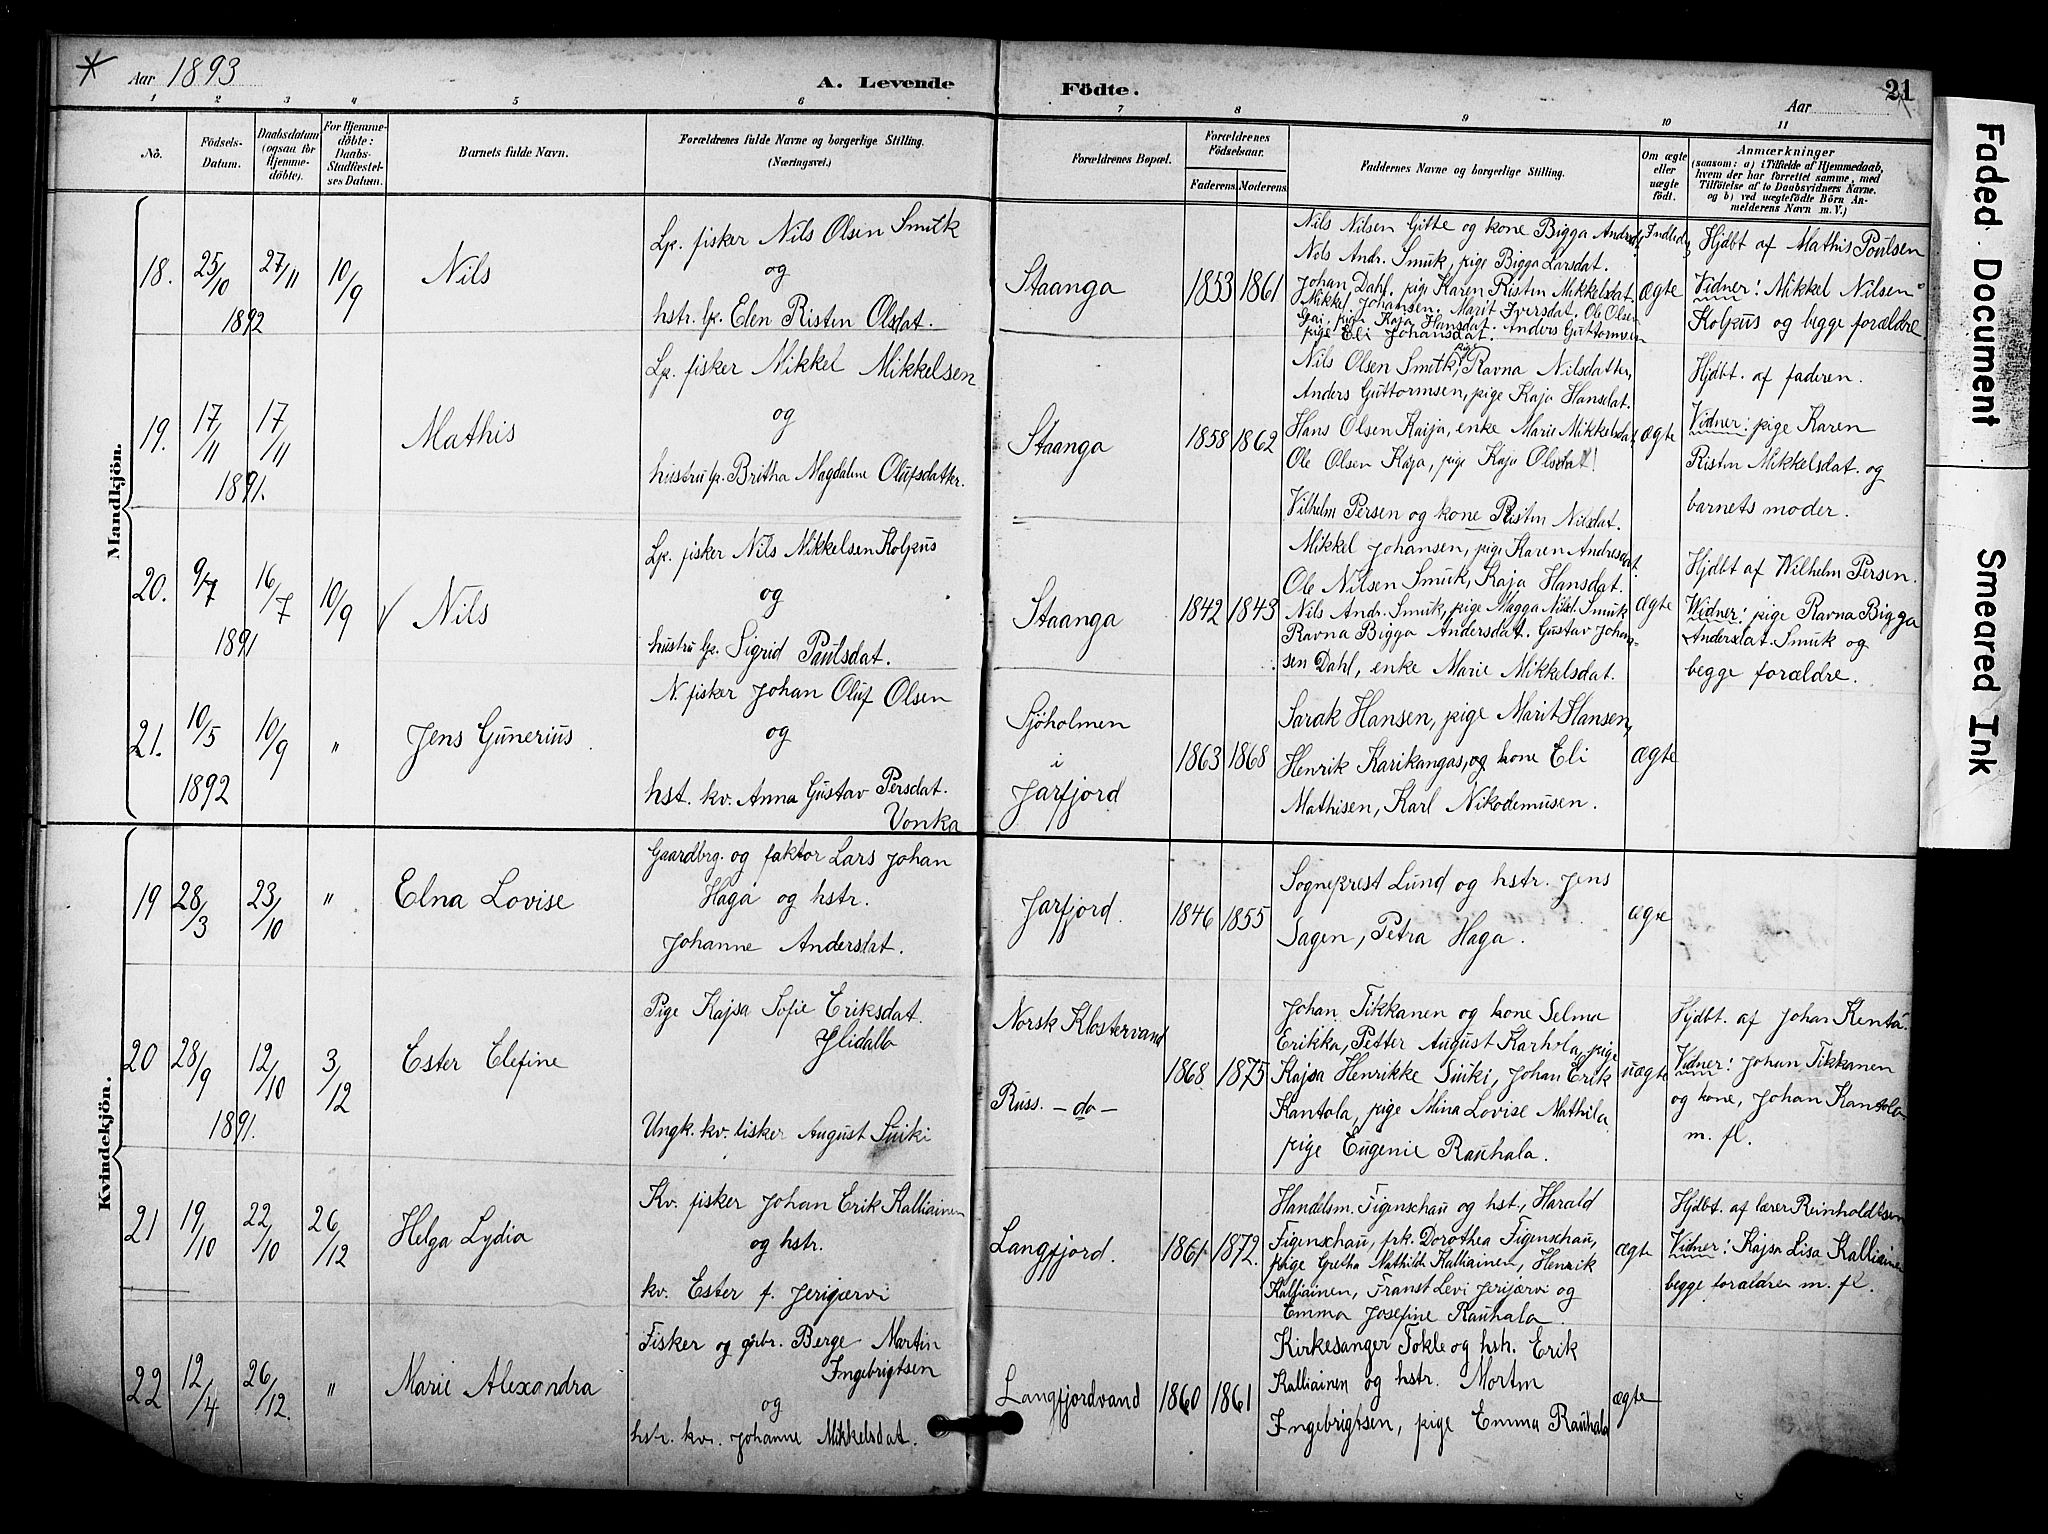 Aar 1893
A. Levende
Födte.
Aar
21
1 2 3 4 5 6 7 8 9 10 11
No.
Födsels-
Datum.
Daabsdatum
(ogsaa for
Hjemme-
döbte).
For Hjemme-
döbte:
Daabs-
Stadfæstel-
ses Datum.
Barnets fulde Navn.
Forældrenes fulde Navne og borgerlige Stilling.
(Næringsvei.)
Forældrenes Bopæl.
Forældrenes
Födselsaar.
Faderens.
Moderens.
Faddernes Navne og borgerlige Stilling.
Om ægte
eller
uægte
födt.
Anmærkninger
(saasom: a) i Tilfælde af Hjemmedaab,
hvem der har forrettet samme, med
Tilföielse af to Daabsvidners Navne.
og b) ved uægtefödte Börn An-
melderens Navn m. V.)
Mandkjön.
18. 25/10 1892 27/11 10/9
Nils
Lp. fisker Nils Olsen Smuk
og
hstr. lp. Elen Ristin Olsdat.
Staanga
1853 1861
Nils Nilsen Gitte og kone Bigga
Nils Andr. Smuk, pige Bigga Larsdat.
Johan Dahl, pig Karen Ristin Mikkelsdat.
Mikkel Johansen. Marit Iversdat. Ole Olsen
pige Kaja Hansdat. Anders Guttormsen
pige Eli Johansdat.
ægte
Hjdbt af Mathis Poulsen
Vidner: Mikkel Nilsen
Kolpus og begge forældre
19. 17/11 1891. 17/11
Mathis
Lp. fisker Mikkel Mikkelsen
og
hustru lp. Britha Magdalene Olufsdatter.
Staanga
1858 1862
Nils Olsen Smuk, pige Ravna Nilsdatter,
Anders Guttormsen, pige Kaja Hansdat.
Hans Olsen Kaija, enke Marie Mikkelsdat
Ole Olsen Kaja, pige Kaja Olsdat!
ægte
Hjdbt. af faderen.
Vidner: pige Karen
Ristin Mikkelsdat. og
barnets moder.
20. 9/7 1891 16/7 10/9
√ Nils
Lp. fisker Nils Mikkelsen Kolpus
og
hustru lp. Sigrid Paulsdat.
Staanga
1842 1843
Vilhelm Persen og kone Ristin Nilsdat.
Mikkel Johansen, pige Karen Andresdat.
Ole Nilsen Smuk, Kaja Hansdat.
Nils Andr. Smuk, pige Magga Nilsd. Smuk
Ravna Bigga Andersdat. Gustav Johan-
sen Dahl, enke Marie Mikkelsdat.
ægte
Hjdbt af Wilhelm Persen.
Widner: pige Ravna Bigga
Andersdat. Smuk og
begge forældre.
21. 10/5 1892 10/9 "
Jens Gunerius
N. fisker Johan Oluf Olsen
og
hst. kv. Anna Gustav Persdat.
Vonka
Sjøholmen
i
Jarfjord
1863 1868
Sarak Hansen, pige Marit Hansen,
Henrik Karikangas, og kone Eli
Mathisen, Karl Nikodemusen.
ægte
Kvindekjön.
19 28/3 23/10 "
Elna Lovise
Gaardbrg. og faktor Lars Johan
Haga og hstr.
Johanne Andersdat.
Jarfjord.
1846 1855
Sogneprest Lund og hstr. Jens
Sagen, Petra Haga.
ægte
20 28/9 1891. 12/10 3/12
Ester Elefine
Pige Kajsa Sofie Eriksdat.
Ylidallo
Ungk. kv. fisker August Suiki
Norsk Klostervand
Russ. — do —
1868 1875
Johan Tikkanen og kone Selma
Erikka, Petter August Karhola, pige
Kajsa Henrikke Suiki, Johan Erik
Kantola, pige Mina Lovise Mathila
pige Eugenie Rauhala.
uægte
Hjdbt. af Johan
Vidner: Johan Tikkanen
og kone, Johan Kantola
m. fl.
21 19/10 22/10 26/12
Helga Lydia
Kv. fisker Johan Erik Kalliainen
og hstr.
kv. Ester f. Jerijærvi
Langfjord.
1861 1872.
Handelsm. Figenschau og hst., Harald
Figenschau, frk. Dorothea Figenschau,
pige Gretha Mathilde Kalliainen, Henrik
Kalliainen, Franst Levi Jerijærvi og
Emma Josefine Rauhala.
ægte
Hjdbt. af lærer Reinholdtsen
Vidner: Kajsa Lisa Kalliainen
begge forældre m. fl.
22 12/4 26/12. "
Marie Alexandra
Fisker og grbr. Berge Martin
Ingebrigtsen
og
hstr. kv. Johanne Mikkelsdat.
Langfjordvand
1860 1861
Kirkesanger Fokle og hstr. Erik
Kalliainen og hstr. Mortin
Ingebrigtsen, pige Emma Rauhala
ægte
Faded Document
Smeared Ink